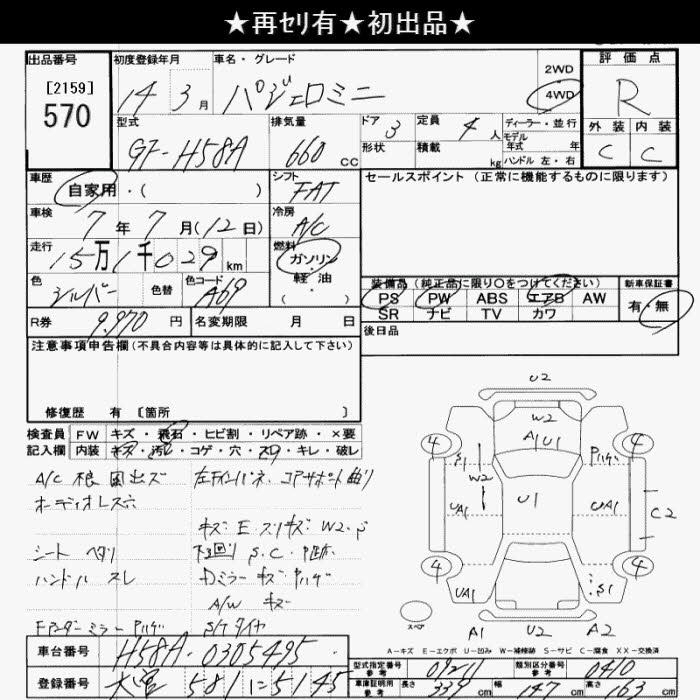 ★再セリ有★初出品★
出品番号
[2159]
570
初度登録年月
14年3月
車名・グレード
パジェロミニ
2WD
4WD
評価点
R
外装 内装
C C
型式
GF-H58A
排気量
660 cc
ドア 3
形状
定員 4人
積載 kg
ディーラー・並行
モデル
年式 年
ハンドル 左・右
車歴
自家用・( )
シフト
FAT
セールスポイント (正常に機能するものに限ります)
車検
7年7月(12日)
冷房
A/C
走行
15万1千029km
燃料
ガソリン・
軽油・
( )
色
シルバー
色替
色コード
A69
装備品(純正品に限り○をつけてください)
PS PW ABS エアB AW
SR ナビ TV カワ
新車保証書
有・無
R券 9,970円
名変期限 月 日
後日品
注意事項申告欄(不具合内容等は具体的に記入して下さい)
修復歴 有 [箇所 ]
検査員
記入欄
FW キズ・飛石・ヒビ割・リペア跡・×要
内装 キズ・汚レ・コゲ・穴・スリ・キレ・破レ
A/C 根 風出ズ
オーディオレス穴
シート ヘタリ
ハンドル スレ
Fアンダーミラー Pハゲ
左右インパネ、コアサポート曲り
キズ E スリキズ W2・P
下回り S、C、P
Dミラー キズ Pハゲ
A/W キズ
S/Tタイヤ
U2
W2
A1U1
4
4
S1
W2
Pハゲ
UA1
U1
UA1
C2
4
4
UA1
S1
スペア
A1
U2
A2
A-キズ E-エクボ U-凹み W-補修跡 S-サビ C-腐食 XX-交換済
車台番号 H58A-0305495
登録番号 大宮 581 に 5145
型式指定番号
参考
09211
類別区分番号
参考
0410
車庫証明用
参考
長さ 339 cm
幅 147 cm
高さ 163 cm